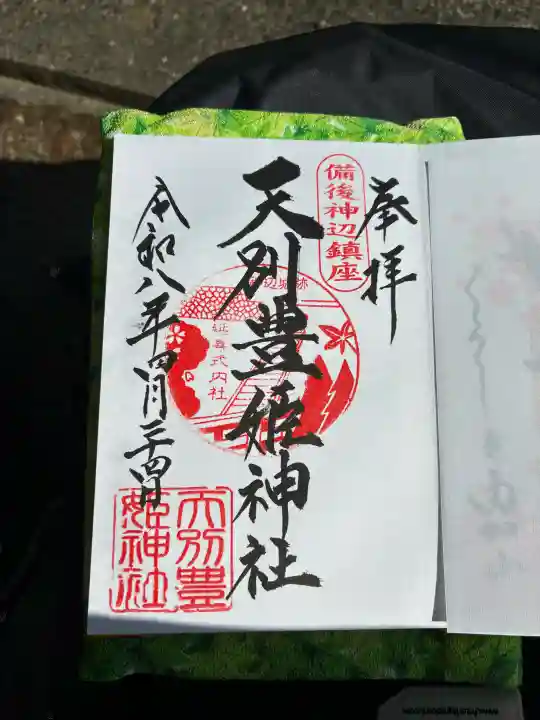 奉拝
備後神辺鎮座
天別豊姫神社
辺城跡
延喜式内社
天別豊
姫神社
令和八年四月二十四日